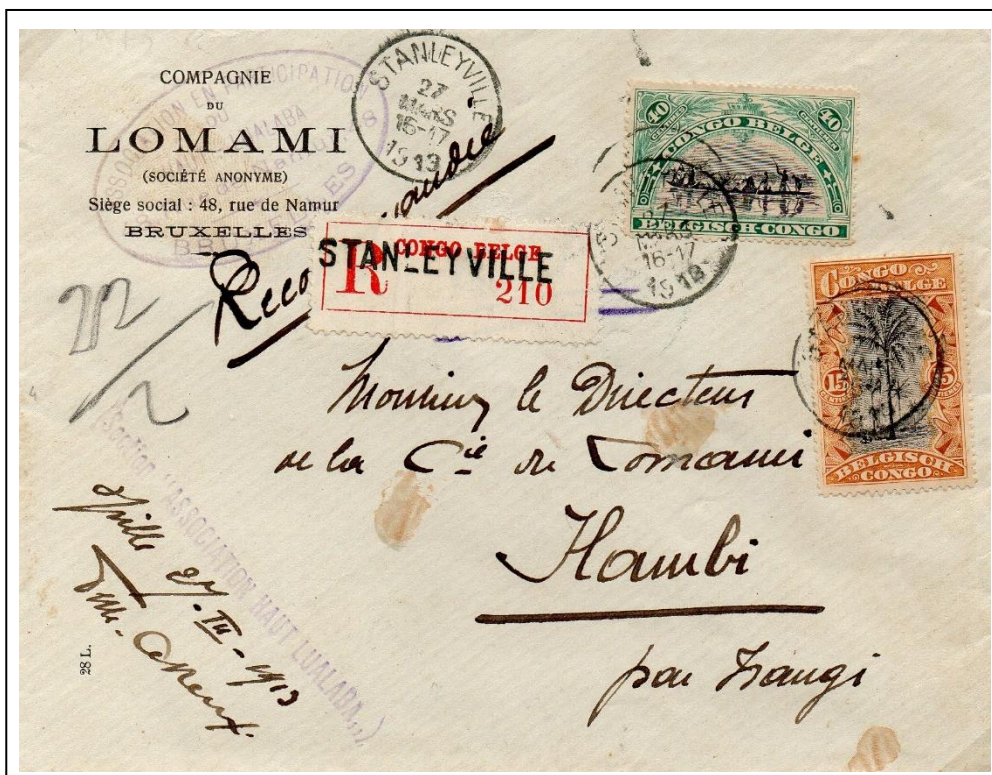 COMPAGNIE
DU
LOMAMI
(SOCIÉTÉ ANONYME)
Siège social : 48, rue de Namur
BRUXELLES
ASSOCIATION EN PARTICIPATION
DU
LUALABA
BRUXELLES
STANLEYVILLE
27
MARS
16-17
1913
40 40
CONGO BELGE
BELGISCH-CONGO
16-17
1913
CONGO BELGE
R STANLEYVILLE
210
CONGO
BELGE
15 15
BELGISCH
CONGO
212
2
Monsieur le Directeur
de la Cie du Lomami
Hambi
par Isangi
(Section "ASSOCIATION HAUT LUALABA,,)
S/ville
27-III-1913
28 L.